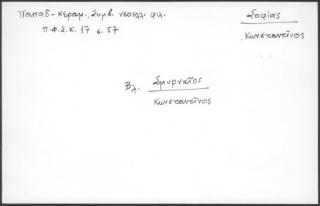 Παπαδ-κεραμ., Συμβ. νεοελλ. φιλ.
Π.Φ.Σ.Κ. 17 σ. 57
Σοφίας
Κωνσταντῖνος
Βλ. Σμυρναῖος
Κωνσταντῖνος